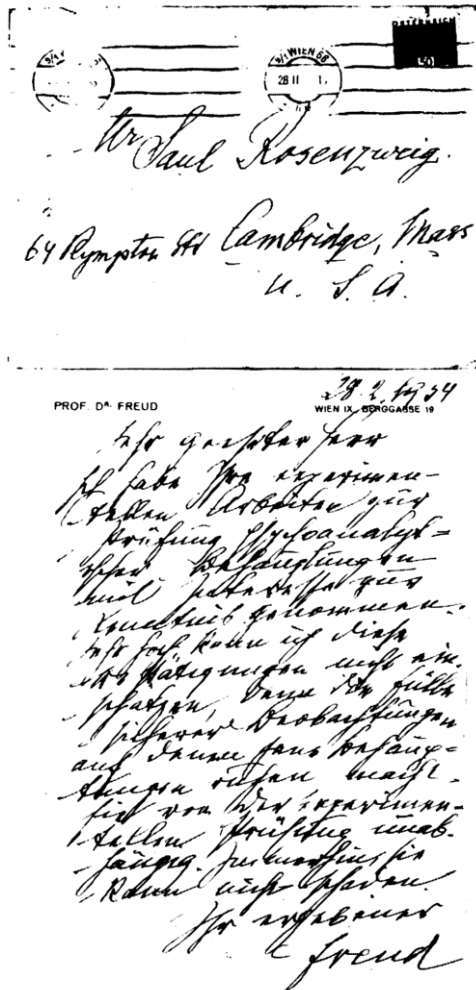 ÖSTERREICH
WIEN 68
28 II
Mr Saul Rosenzweig.
64 Plympton Str Cambridge, Mass
U. S. A.
28. 2. 1934
PROF. DR. FREUD
WIEN IX., BERGGASSE 19
Sehr geehrter Herr
Ich habe Ihre experimen-
tellen Arbeiten zur
Prüfung psychoanalyti-
scher Behauptungen
mit Interesse zur
Kenntnis genommen.
Sehr hoch kann ich diese
Bestätigungen nicht ein-
schätzen, denn die Fülle
sicherer Beobachtungen
auf denen jene Behaup-
tungen ruhen macht
sie von der experimen-
tellen Prüfung unab-
hängig. Immerhin, sie
kann nicht schaden.
Ihr ergebener
Freud